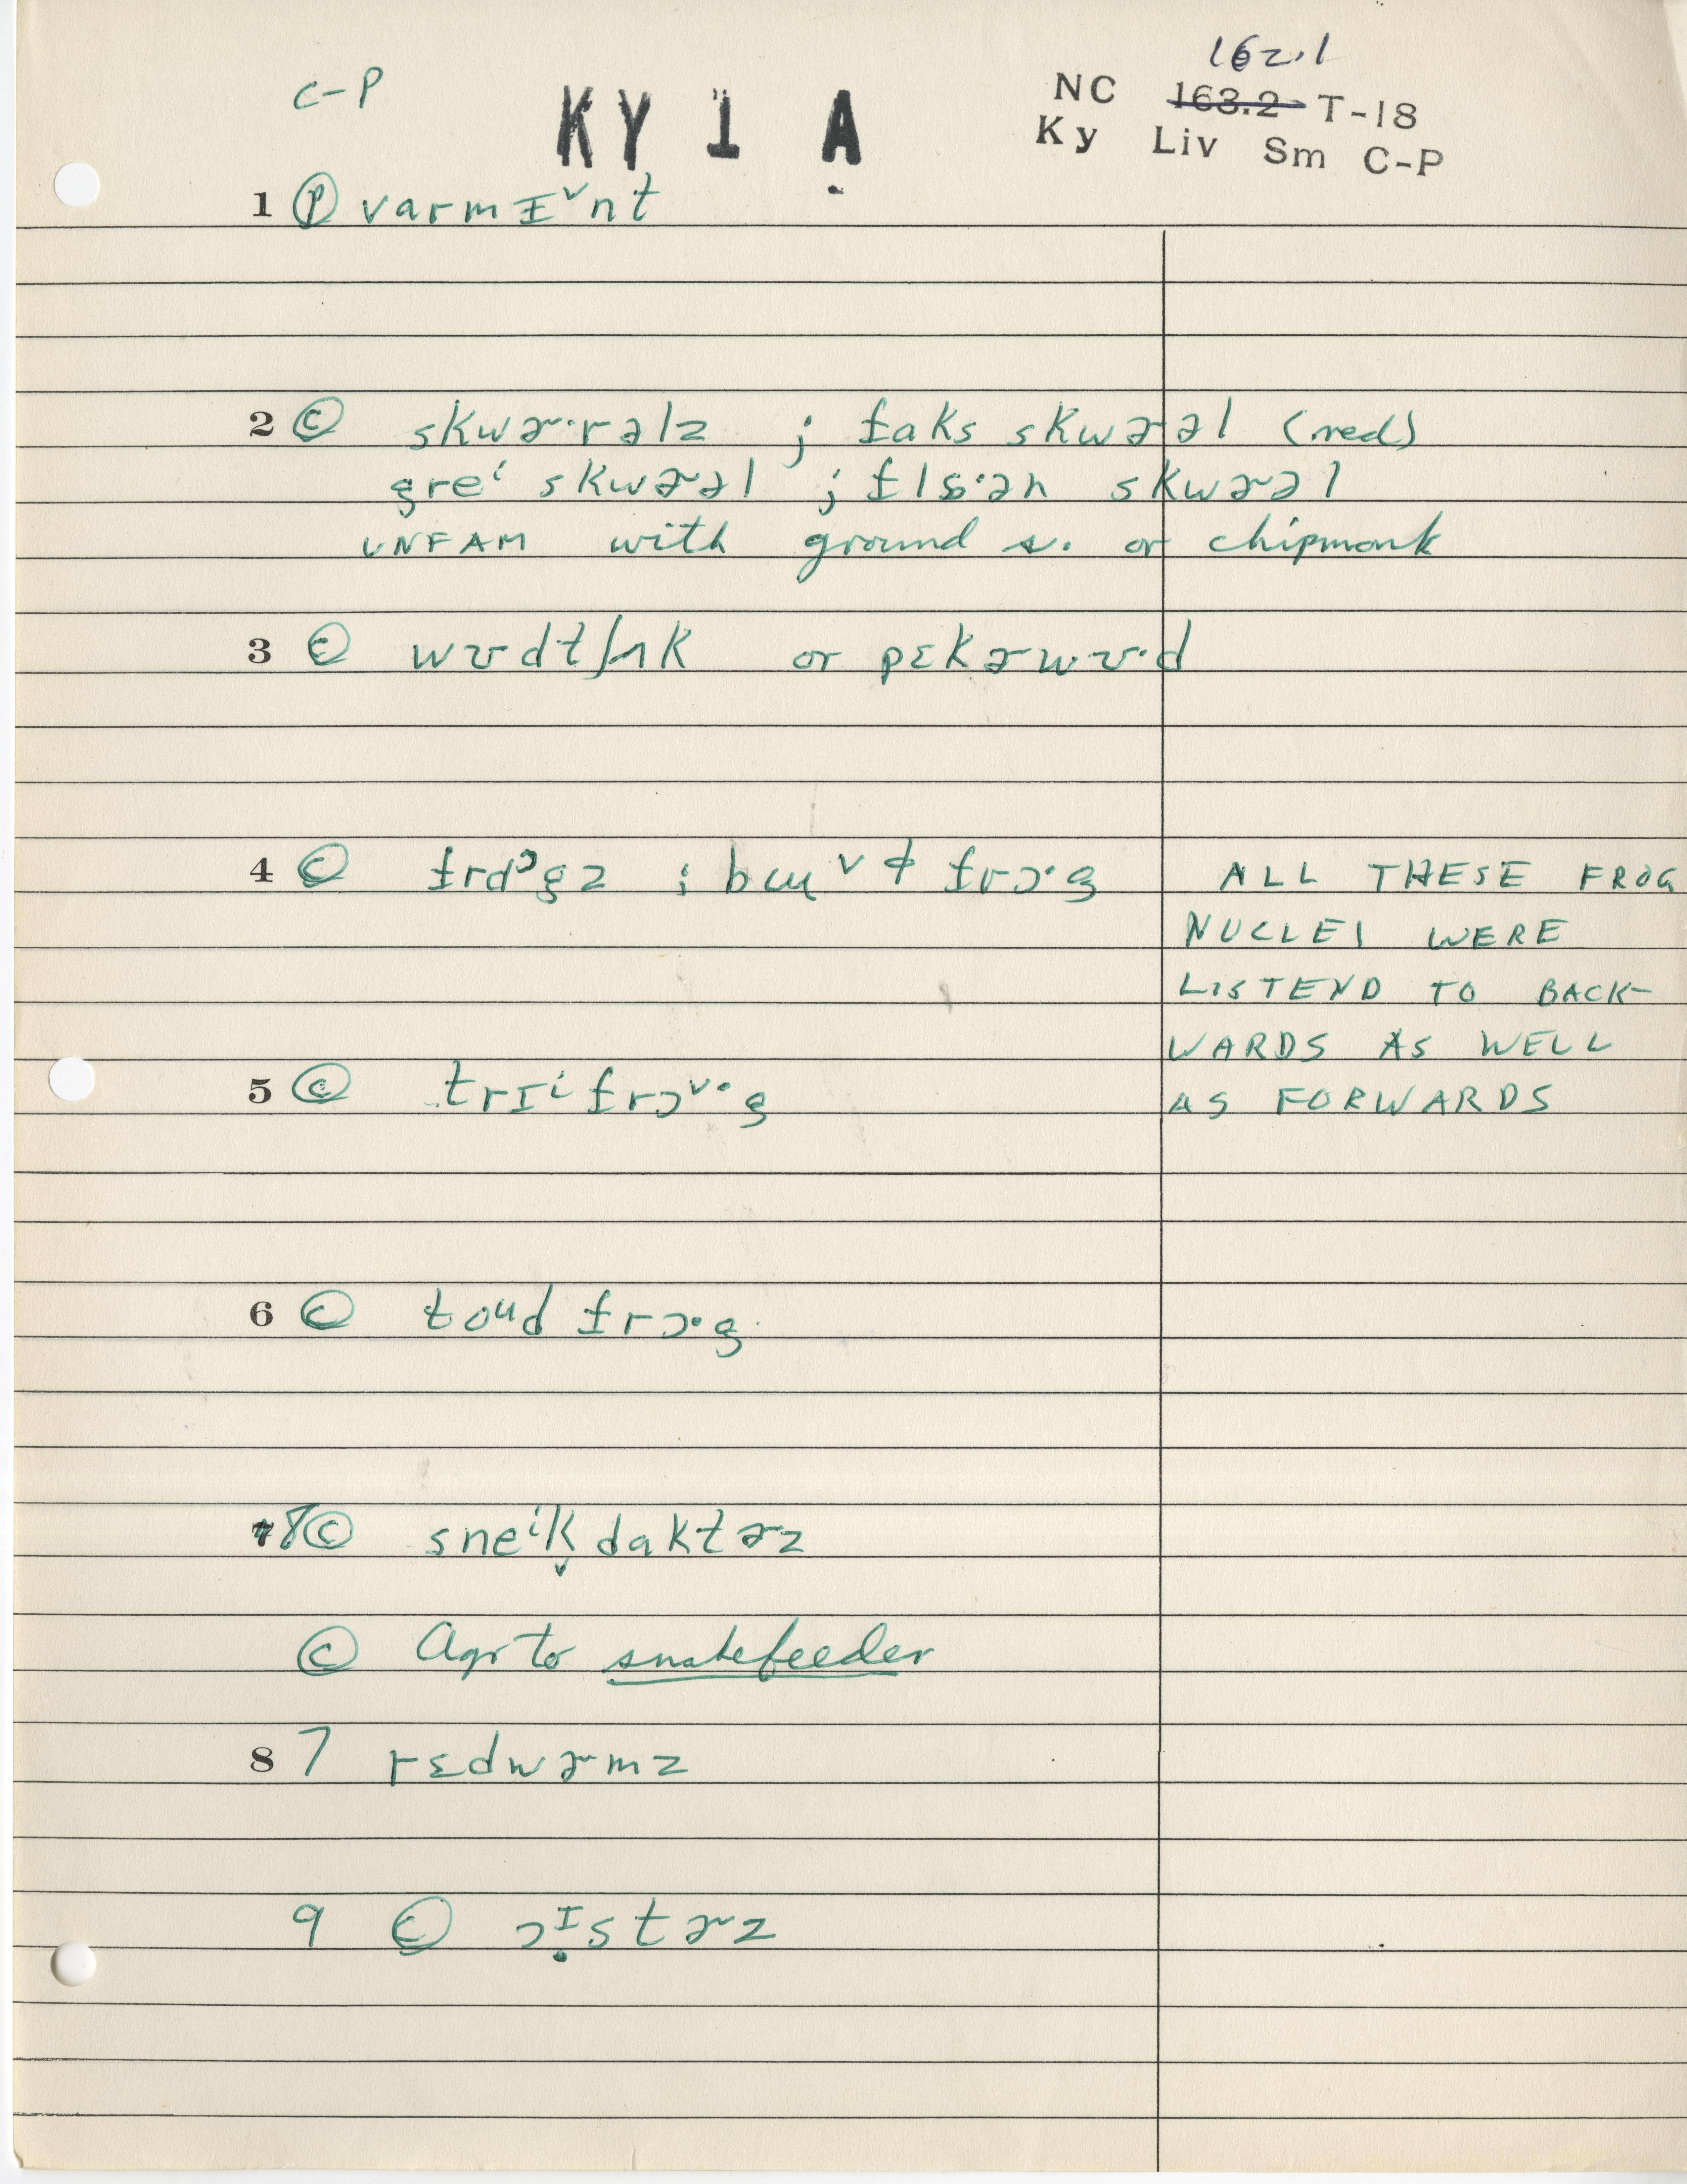 162.1
C-P
KY 1 A
NC 163.2 T-18
Ky Liv Sm C-P
1 Ⓟ varmɪ̵ˇnt
2 Ⓒ skwɚ·rəlz ; faks skwɚəl (red)
greⁱ skwɚəl ; skwɚəl
UNFAM with ground s. or chipmonk
3 Ⓒ wʊdtʃʌk or pɛkɚwʊ·d
4 Ⓒ frɑᵓgz ; frɔ·g
ALL THESE FROG
NUCLEI WERE
LISTEND TO BACK-
WARDS AS WELL
AS FORWARDS
5 Ⓒ trɪⁱfrɔˇ·g
6 Ⓒ toᵘd frɔ·g
7 8 Ⓒ sneⁱk̬daktɚz
Ⓒ Agr to snakefeeder
8 7 rɛdwɚmz
9 Ⓒ ɔᶦ̣stɚz